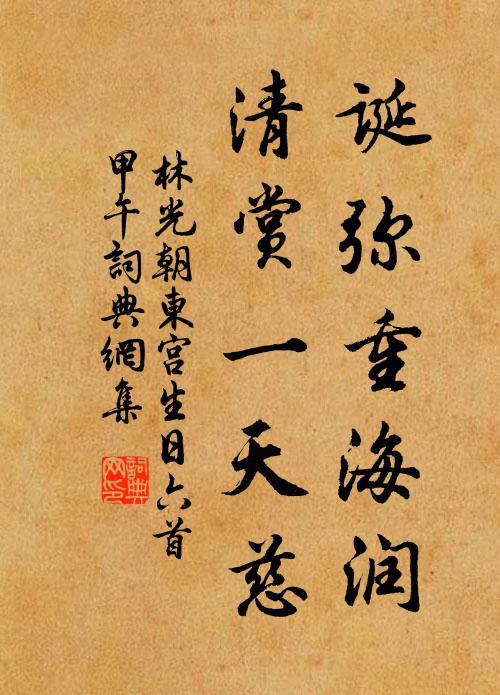 诞弥重海润
清赏一天慈
林光朝東宫生日六首
甲午詞典網集
詞典网印